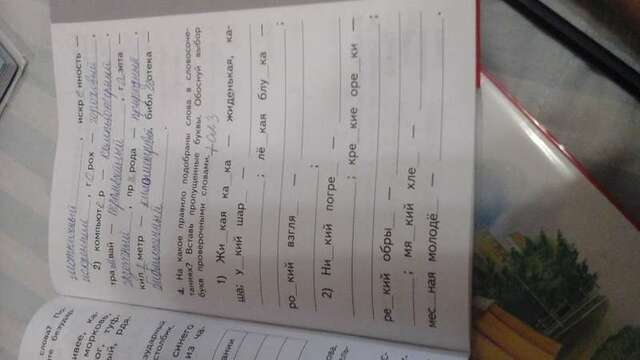 слова? По-
те безудар-
ивее, ка-
морковь,
ог, туф,
ый, ряд.
зударный
столбик.
синего
из ча-
ании
, искр е нность —
, г о рох — гороховый
2) компьют е р — компьютерный
тра м вай — трамвайный , г а зета —
газетный , пр и рода — природный ,
кил о метр — километровый библ ио тека —
библиотечный .
4. На какое правило подобраны слова в словосоче-
таниях? Вставь пропущенные буквы. Обоснуй выбор
букв проверочными словами.
1) Жи__кая ка__ка — жиденькая, ка-
ша; у__кий шар__ —
; лё__кая блу__ка —
;
ро__кий взгля__ —
;
2) Ни__кий погре__ —
; кре__кие оре__ки —
;
ре__кий обры__ —
; мя__кий хле__ —
мес__ная молодё__ — .